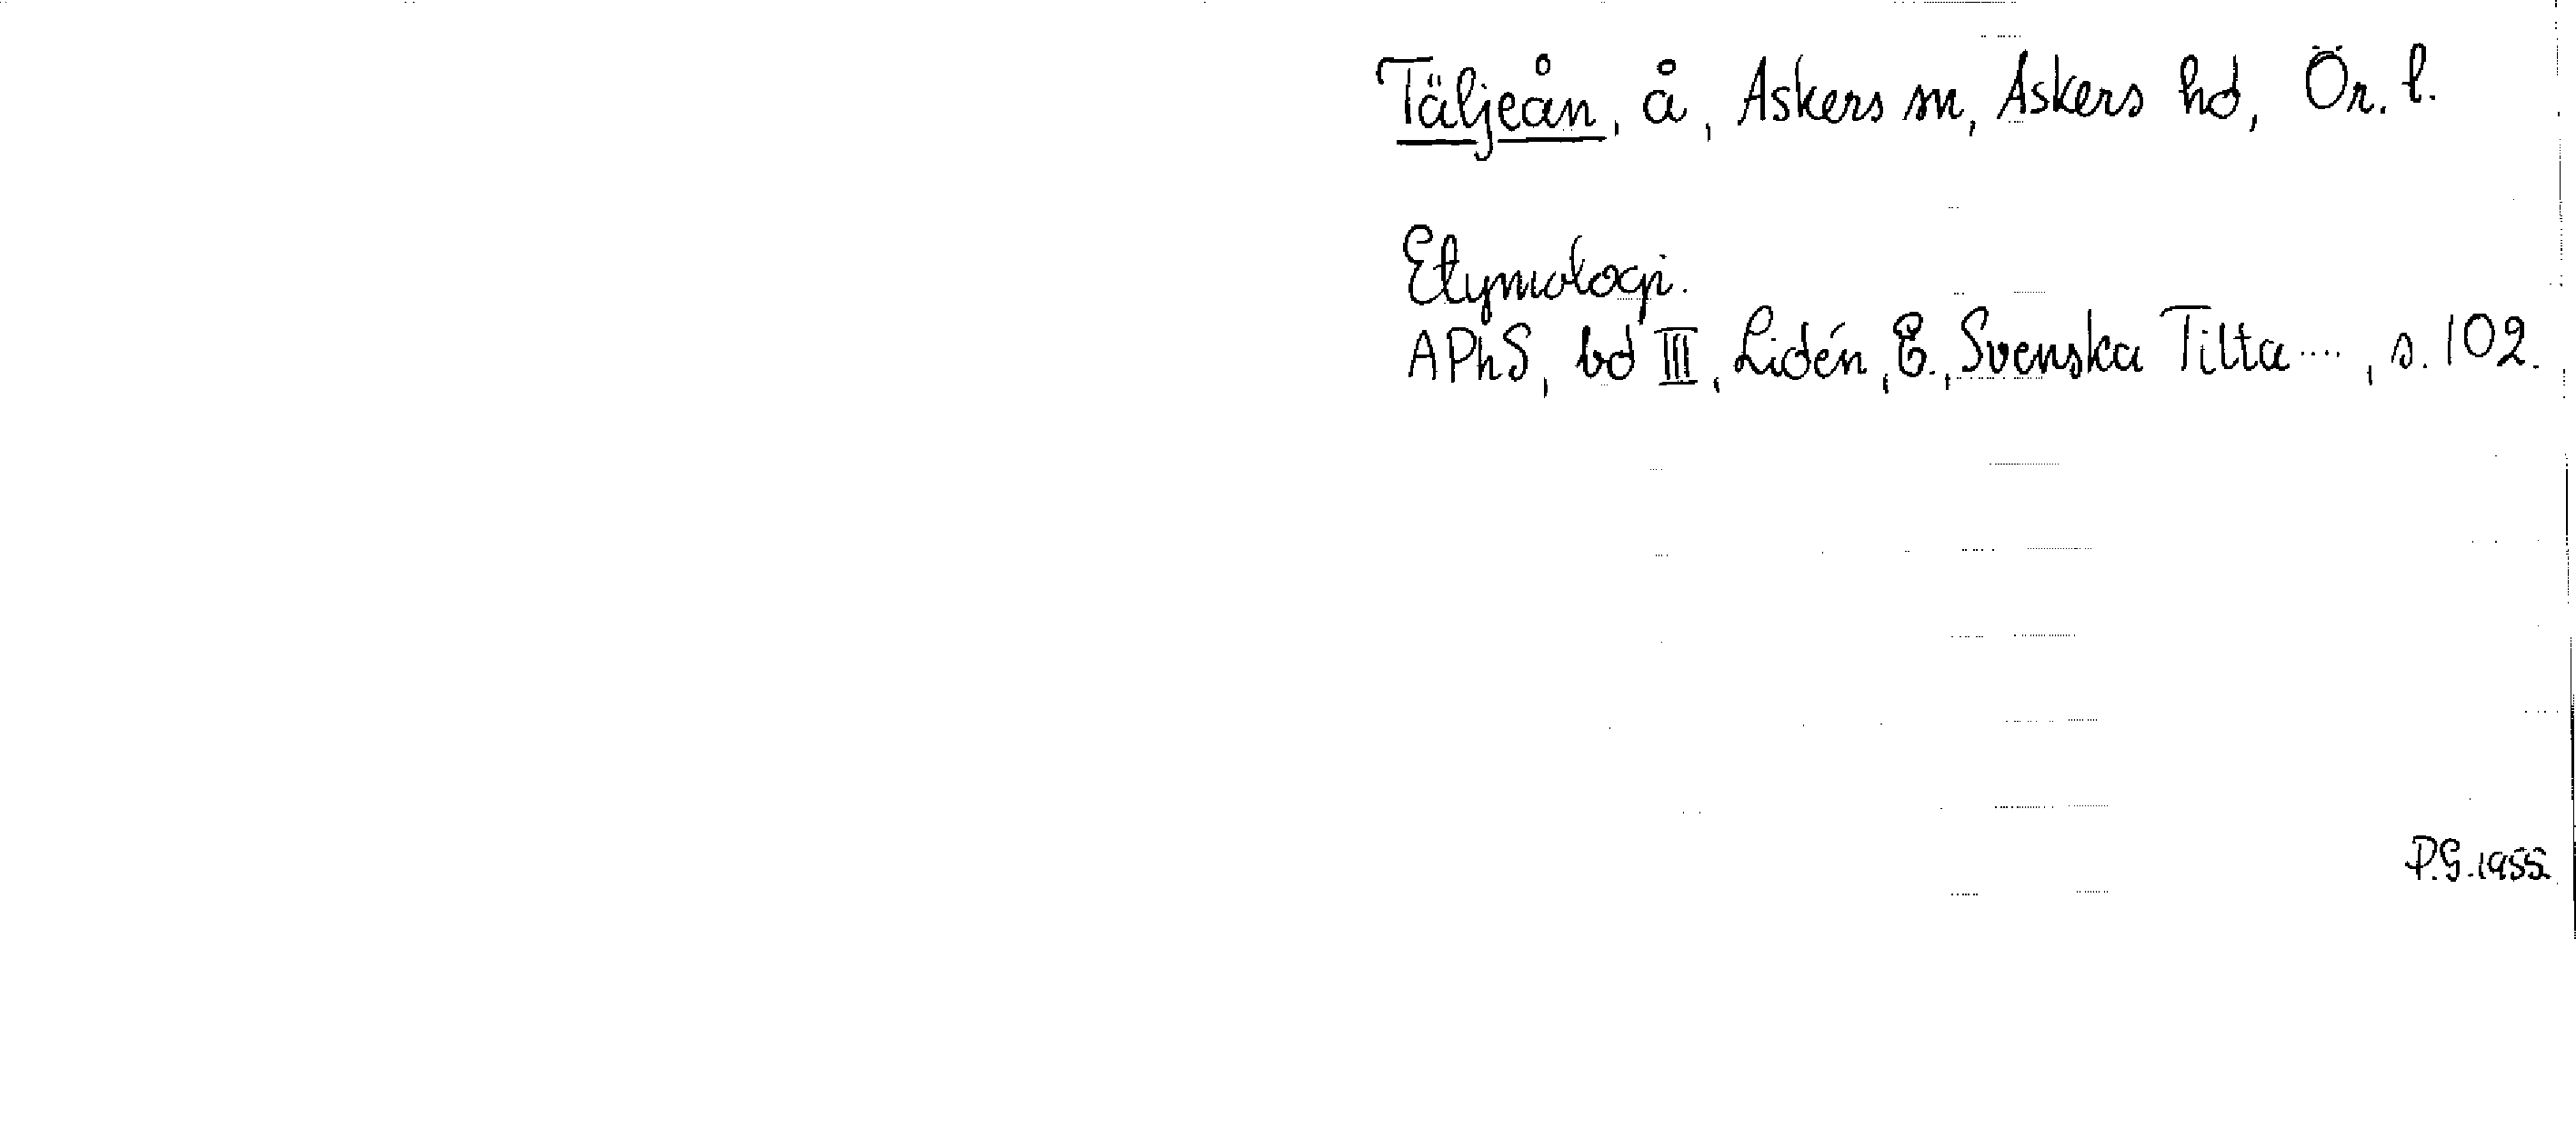 Täljeån, å, Askers sn, Askers hd, Ör. l.
Etymologi.
APhS, bd III, Lidén, E., Svenska Tilta...., s. 102.
P.G. 1955.